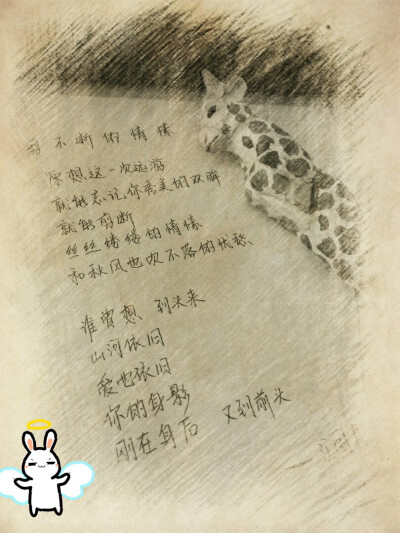 剪不断的情愫
原想这一次远游
就能忘记你秀美的双眸
就能剪断
丝丝缕缕的情愫
和秋风也吹不落的忧愁
谁曾想 到头来
山河依旧
爱也依旧
你的身影
刚在身后 又到前头